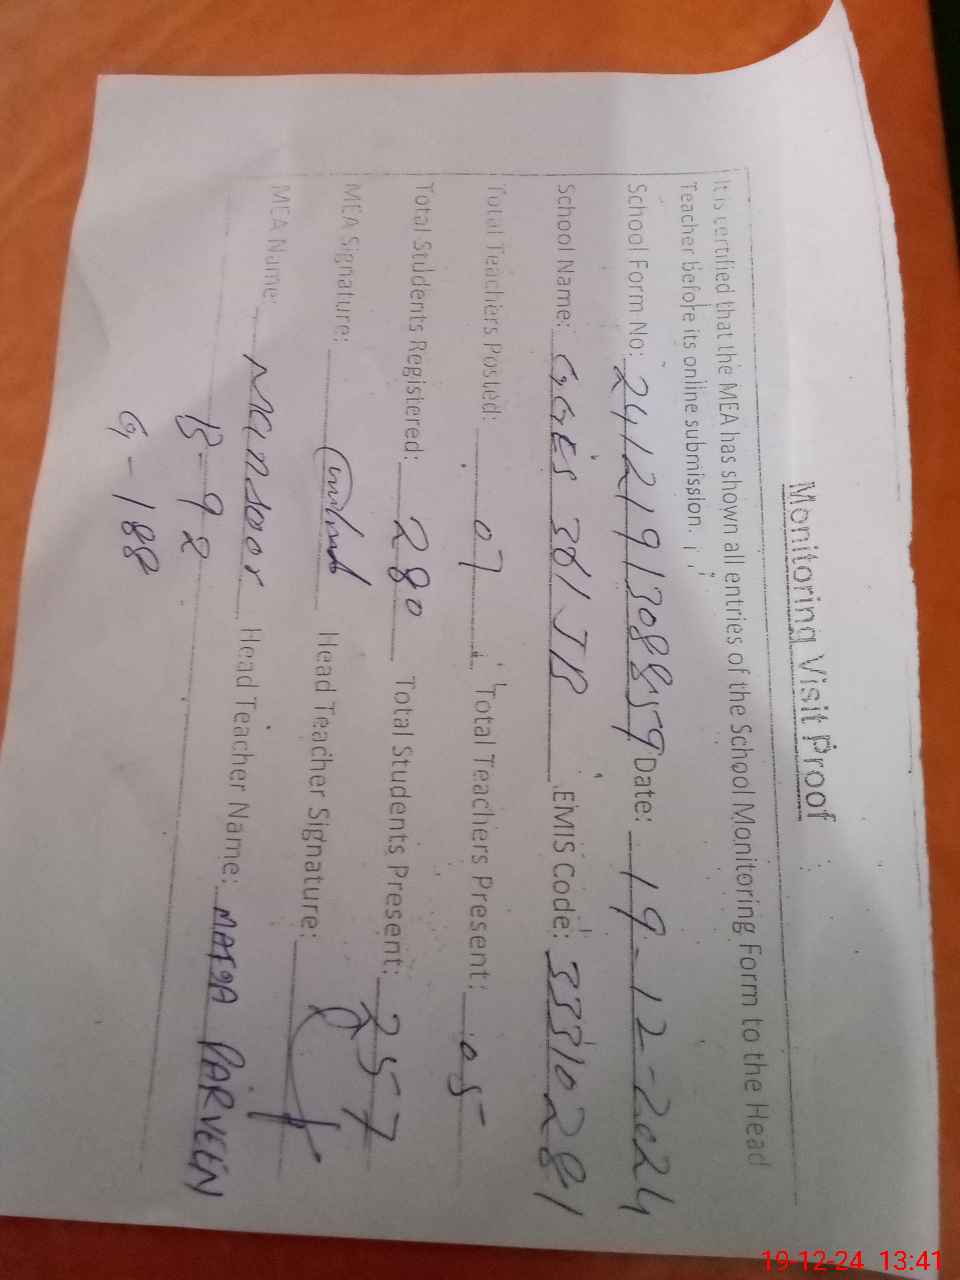 Monitoring Visit Proof
It is certified that the MEA has shown all entries of the School Monitoring Form to the Head
Teacher before its online submission.
School Form No: 24121913088459 Date: 19-12-2024
School Name: GGES 381 JB EMIS Code: 33310281
Total Teachers Posted: 07 Total Teachers Present: 05
Total Students Registered: 280 Total Students Present: 257
MEA Signature: Head Teacher Signature:
MEA Name: Mansoor Head Teacher Name: PARVEEN
B-92
G-188
19-12-24 13:41